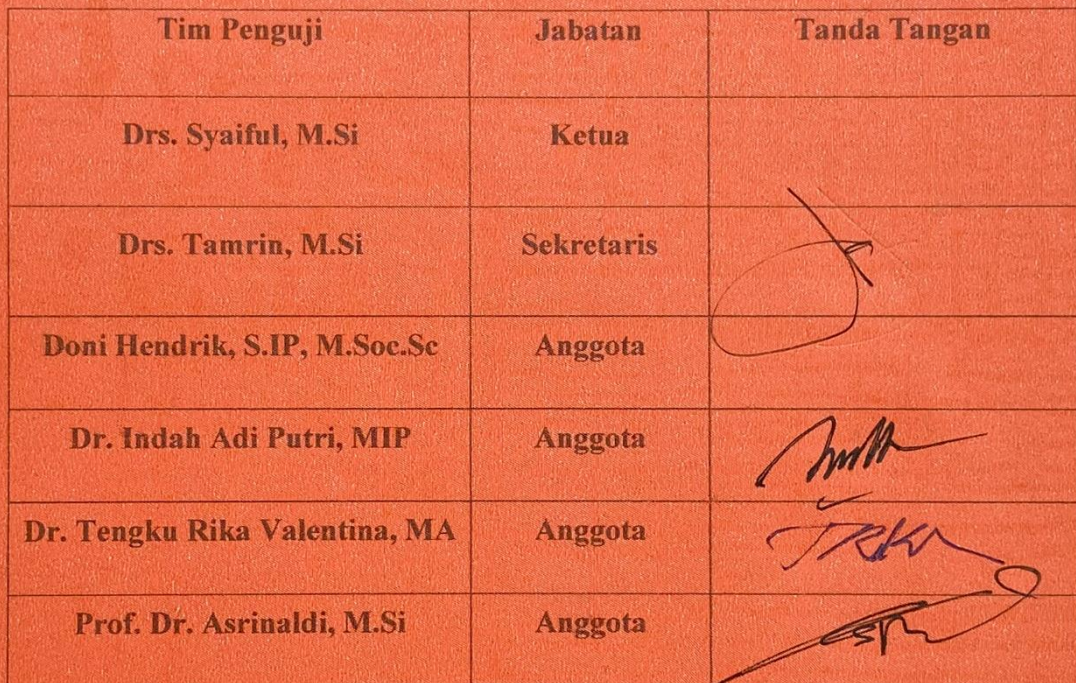 Tim Penguji Jabatan Tanda Tangan
Drs. Syaiful, M.Si Ketua
Drs. Tamrin, M.Si Sekretaris
Doni Hendrik, S.IP, M.Soc.Sc Anggota
Dr. Indah Adi Putri, MIP Anggota
Dr. Tengku Rika Valentina, MA Anggota
Prof. Dr. Asrinaldi, M.Si Anggota